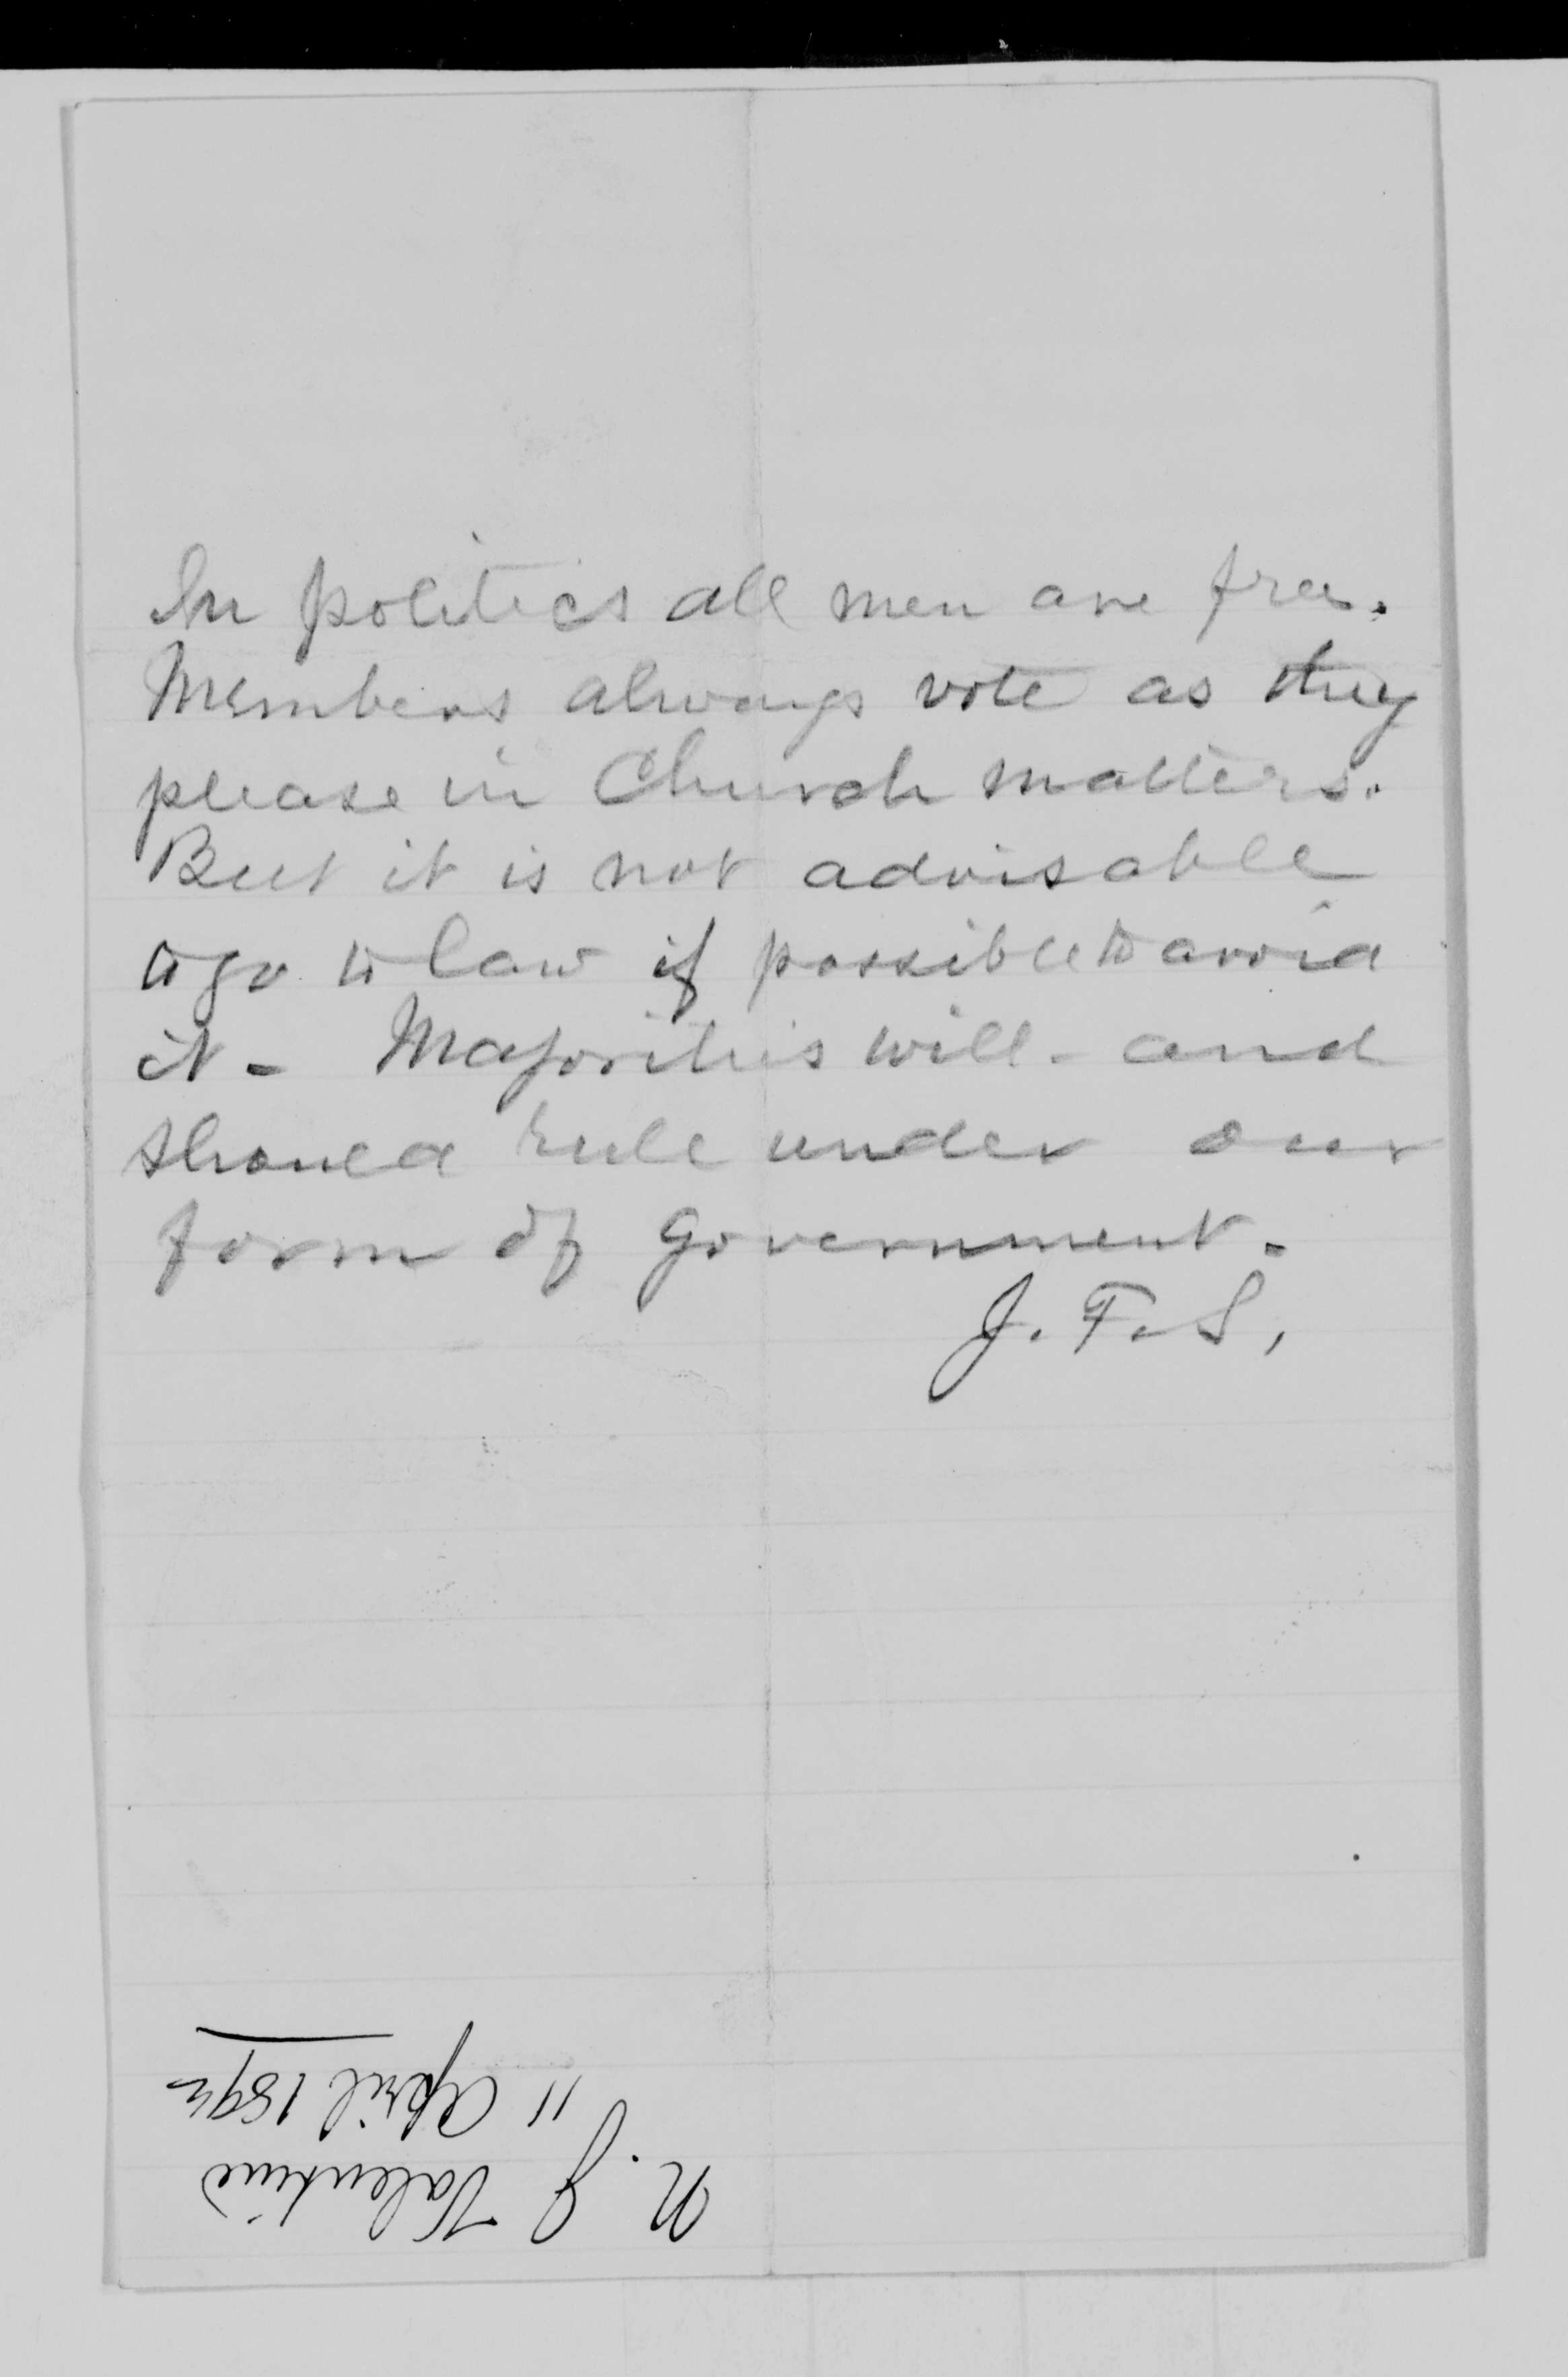 In politics all men are free.
Members always vote as they
please in Church matters.
But it is not advisable
to go to law if possible to avoid
it - Majorities will - and
should rule under our
form of government.
J. F. S.
N. J. Valentine
11 April 1892